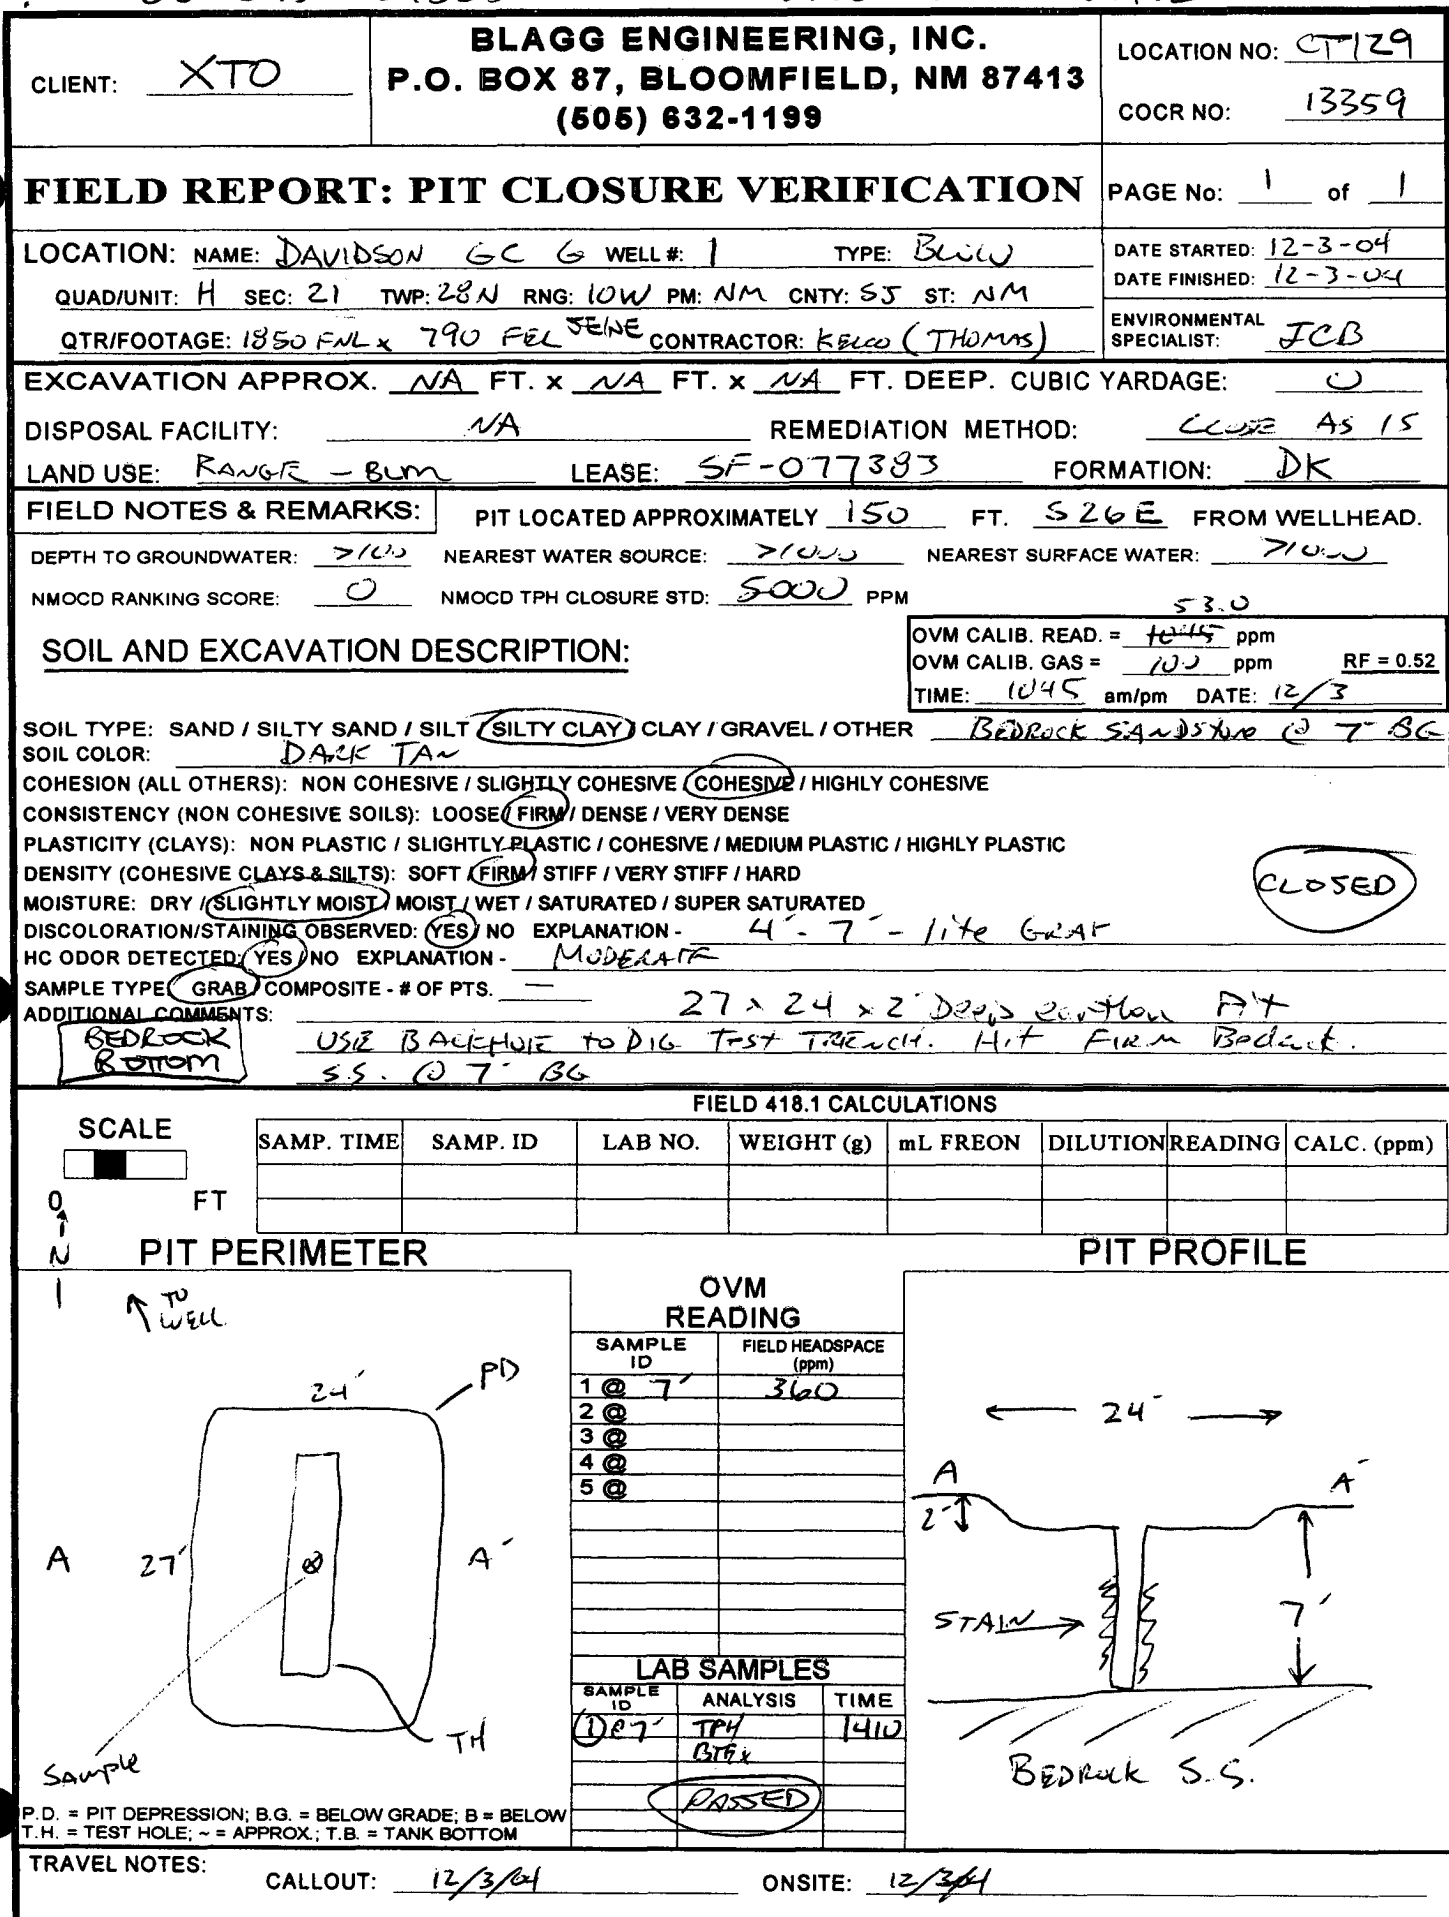 BLAGG ENGINEERING, INC.
P.O. BOX 87, BLOOMFIELD, NM 87413
(505) 632-1199
CLIENT: XTO
LOCATION NO: CT129
COCR NO: 13359
FIELD REPORT: PIT CLOSURE VERIFICATION
PAGE No: 1 of 1
LOCATION: NAME: DAVIDSON GC G WELL #: 1 TYPE: BLOW
QUAD/UNIT: H SEC: 21 TWP: 28N RNG: 10W PM: NM CNTY: SJ ST: NM
QTR/FOOTAGE: 1850 FNL x 790 FEL SE/NE CONTRACTOR: KELCO (THOMAS)
DATE STARTED: 12-3-04
DATE FINISHED: 12-3-04
ENVIRONMENTAL
SPECIALIST: JCB
EXCAVATION APPROX. NA FT. x NA FT. x NA FT. DEEP. CUBIC YARDAGE: 0
DISPOSAL FACILITY: NA REMEDIATION METHOD: CLOSE AS IS
LAND USE: RANGE - BLM LEASE: SF-077383 FORMATION: DK
FIELD NOTES & REMARKS: PIT LOCATED APPROXIMATELY 150 FT. S26E FROM WELLHEAD.
DEPTH TO GROUNDWATER: >100 NEAREST WATER SOURCE: >1000 NEAREST SURFACE WATER: >1000
NMOCD RANKING SCORE: 0 NMOCD TPH CLOSURE STD: 5000 PPM
53.0
SOIL AND EXCAVATION DESCRIPTION:
OVM CALIB. READ. = 1045 ppm
OVM CALIB. GAS = 100 ppm RF = 0.52
TIME: 1045 am/pm DATE: 12/3
SOIL TYPE: SAND / SILTY SAND / SILT / SILTY CLAY / CLAY / GRAVEL / OTHER BEDROCK SANDSTONE @ 7' BG
SOIL COLOR: DARK TAN
COHESION (ALL OTHERS): NON COHESIVE / SLIGHTLY COHESIVE / COHESIVE / HIGHLY COHESIVE
CONSISTENCY (NON COHESIVE SOILS): LOOSE / FIRM / DENSE / VERY DENSE
PLASTICITY (CLAYS): NON PLASTIC / SLIGHTLY PLASTIC / COHESIVE / MEDIUM PLASTIC / HIGHLY PLASTIC
DENSITY (COHESIVE CLAYS & SILTS): SOFT / FIRM / STIFF / VERY STIFF / HARD
CLOSED
MOISTURE: DRY / SLIGHTLY MOIST / MOIST / WET / SATURATED / SUPER SATURATED
DISCOLORATION/STAINING OBSERVED: YES / NO EXPLANATION - 4'-7' - lite GRAY
HC ODOR DETECTED: YES / NO EXPLANATION - MODERATE
SAMPLE TYPE: GRAB / COMPOSITE - # OF PTS. —
ADDITIONAL COMMENTS: 27 x 24 x 2' Deep earthen Pit
BEDROCK
BOTTOM
USE BACKHOE to DIG Test TRENCH. Hit FIRM Bedrock.
S.S. @ 7' BG
FIELD 418.1 CALCULATIONS
SCALE
0 FT
SAMP. TIME SAMP. ID LAB NO. WEIGHT (g) mL FREON DILUTION READING CALC. (ppm)
N
PIT PERIMETER
TO
WELL
24'
PD
A 27' A'
TH
Sample
P.D. = PIT DEPRESSION; B.G. = BELOW GRADE; B = BELOW
T.H. = TEST HOLE; ~ = APPROX.; T.B. = TANK BOTTOM
OVM
READING
SAMPLE
ID
FIELD HEADSPACE
(ppm)
1 @ 7' 360
2 @
3 @
4 @
5 @
LAB SAMPLES
SAMPLE
ID
ANALYSIS TIME
1 @ 7' TPH 1410
BTEX
PASSED
PIT PROFILE
24'
A A'
2'
STAIN
7'
BEDROCK S.S.
TRAVEL NOTES:
CALLOUT: 12/3/04 ONSITE: 12/3/04